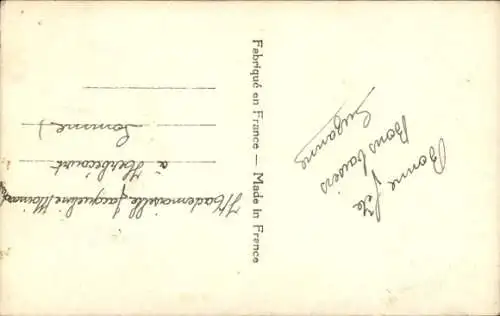 Bonne Fête
Bons baisers
Suzanne
Fabriqué en France — Made in France
Mademoiselle Jacqueline
à Herbécourt
Somme)